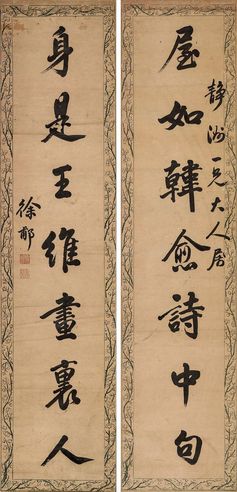 屋如韓愈詩中句
静洲一兄大人属
身是王維畫裏人
徐郙